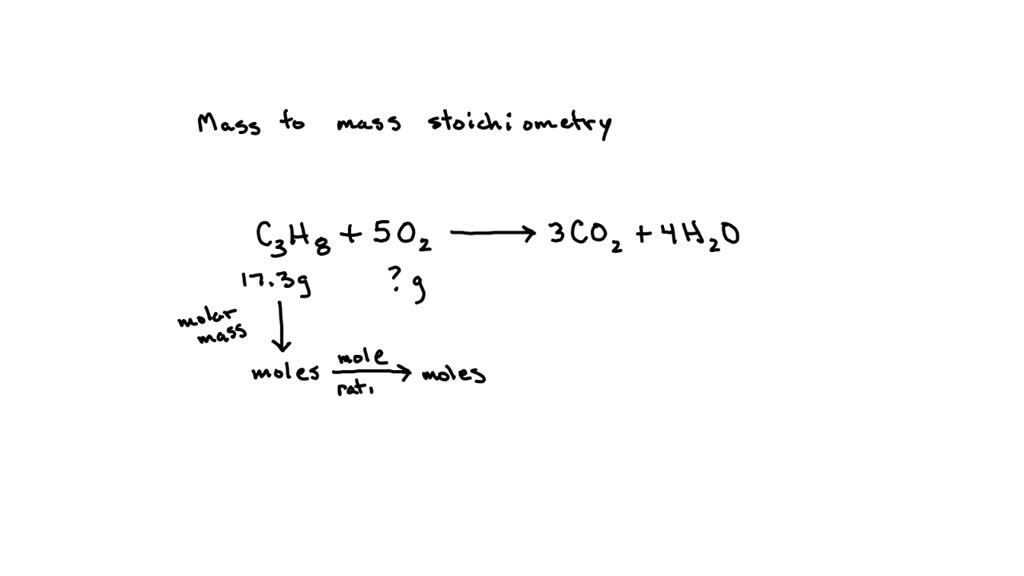 Mass to mass stoichiometry
C₃H₈ + 5O₂ ⟶ 3CO₂ + 4H₂O
17.3g ? g
molar
mass
moles mole → moles
rati